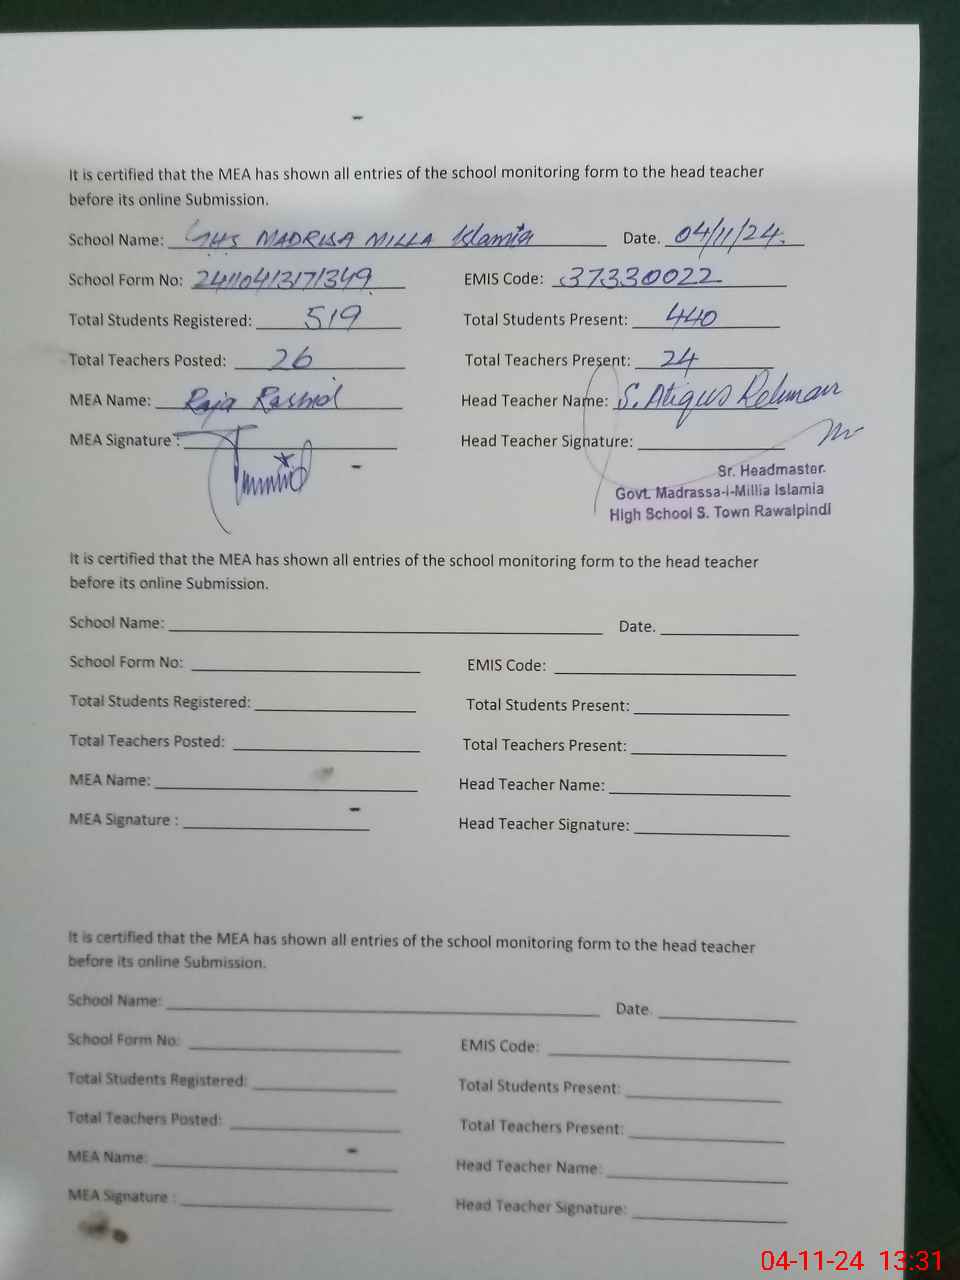 It is certified that the MEA has shown all entries of the school monitoring form to the head teacher
before its online Submission.
School Name: GHS MADRISA MILLA Islamia Date. 04/11/24.
School Form No: 24110413171349 EMIS Code: 37330022
Total Students Registered: 519 Total Students Present: 440
Total Teachers Posted: 26 Total Teachers Present: 24
MEA Name: Raja Rashid Head Teacher Name: S. Atiqus Rehman
MEA Signature : Head Teacher Signature:
Sr. Headmaster.
Govt. Madrassa-i-Millia Islamia
High School S. Town Rawalpindi
It is certified that the MEA has shown all entries of the school monitoring form to the head teacher
before its online Submission.
School Name: Date.
School Form No: EMIS Code:
Total Students Registered: Total Students Present:
Total Teachers Posted: Total Teachers Present:
MEA Name: Head Teacher Name:
MEA Signature : Head Teacher Signature:
It is certified that the MEA has shown all entries of the school monitoring form to the head teacher
before its online Submission.
School Name: Date.
School Form No: EMIS Code:
Total Students Registered: Total Students Present:
Total Teachers Posted: Total Teachers Present:
MEA Name: Head Teacher Name:
MEA Signature : Head Teacher Signature:
04-11-24 13:31